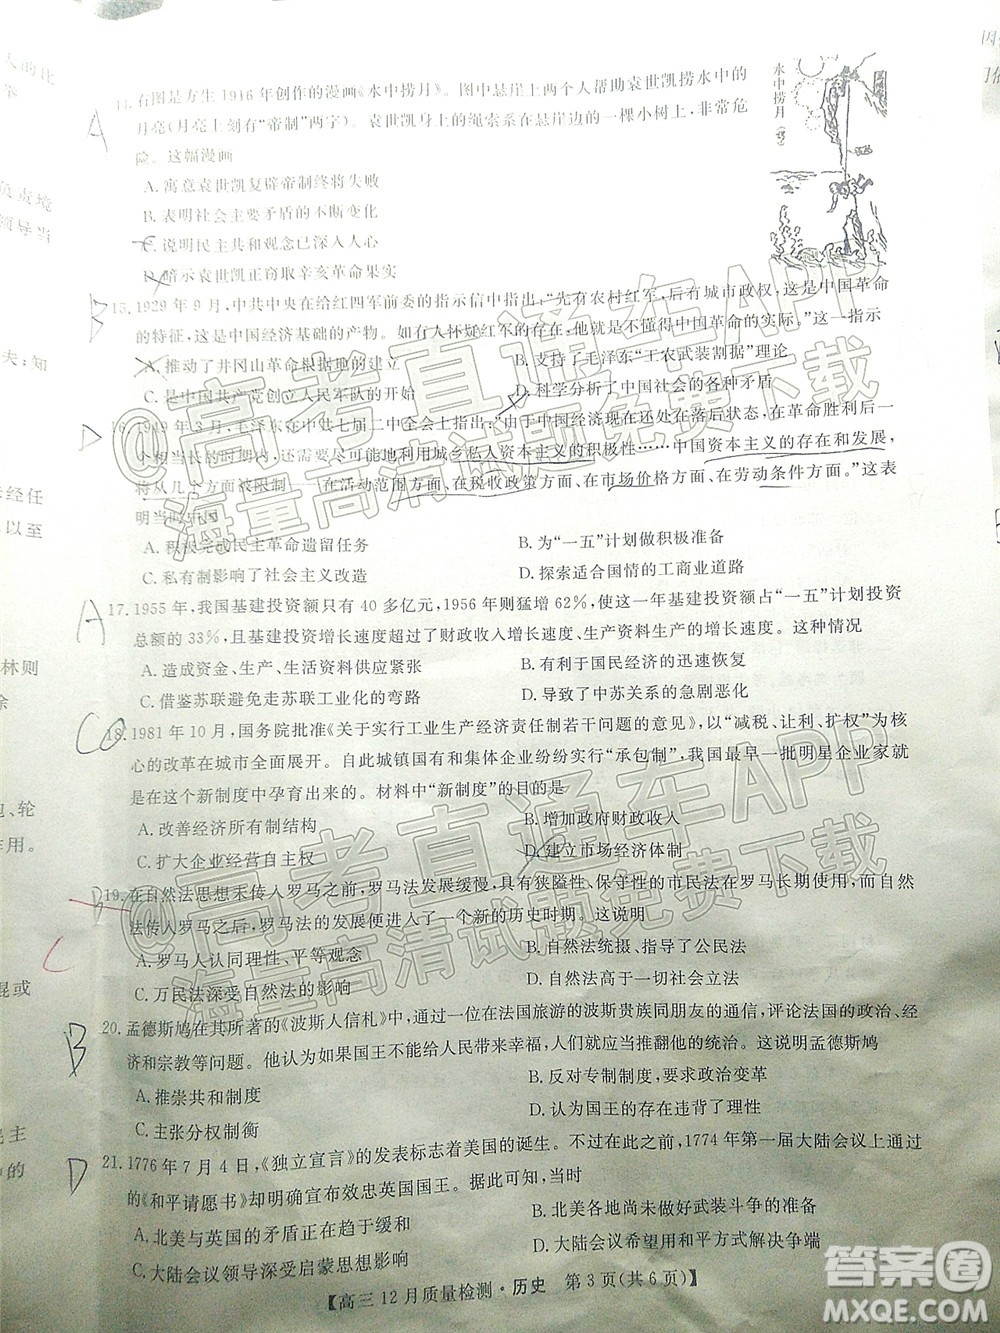 水中捞月(砖)
14. 右图是方生 1916 年创作的漫画《水中捞月》。图中悬崖上两个人帮助袁世凯捞水中的
月亮(月亮上刻有“帝制”两字)。袁世凯身上的绳索系在悬崖边的一棵小树上,非常危
险。这幅漫画
A. 寓意袁世凯复辟帝制终将失败
B. 表明社会主要矛盾的不断变化
C. 说明民主共和观念已深入人心
D. 暗示袁世凯正窃取辛亥革命果实
15. 1929 年 9 月,中共中央在给红四军前委的指示信中指出:“先有农村红军,后有城市政权,这是中国革命
的特征,这是中国经济基础的产物。如有人怀疑红军的存在,他就是不懂得中国革命的实际。”这一指示
A. 推动了井冈山革命根据地的建立
B. 支持了毛泽东“工农武装割据”理论
C. 是中国共产党创立人民军队的开始
D. 科学分析了中国社会的各种矛盾
16. 1949 年 3 月,毛泽东在中共七届二中全会上指出:“由于中国经济现在还处在落后状态,在革命胜利后一
个相当长的时期内,还需要尽可能地利用城乡私人资本主义的积极性……中国资本主义的存在和发展,
将从几个方面被限制——在活动范围方面、在税收政策方面、在市场价格方面、在劳动条件方面。”这表
明当时中国
A. 积极完成民主革命遗留任务
B. 为“一五”计划做积极准备
C. 私有制影响了社会主义改造
D. 探索适合国情的工商业道路
17. 1955 年,我国基建投资额只有 40 多亿元,1956 年则猛增 62%,使这一年基建投资额占“一五”计划投资
总额的 33%,且基建投资增长速度超过了财政收入增长速度、生产资料生产的增长速度。这种情况
A. 造成资金、生产、生活资料供应紧张
B. 有利于国民经济的迅速恢复
C. 借鉴苏联避免走苏联工业化的弯路
D. 导致了中苏关系的急剧恶化
18. 1981 年 10 月,国务院批准《关于实行工业生产经济责任制若干问题的意见》,以“减税、让利、扩权”为核
心的改革在城市全面展开。自此城镇国有和集体企业纷纷实行“承包制”,我国最早一批明星企业家就
在这个新制度中孕育出来的。材料中“新制度”的目的是
A. 改善经济所有制结构
B. 增加政府财政收入
C. 扩大企业经营自主权
D. 建立市场经济体制
19. 在自然法思想未传人罗马之前,罗马法发展缓慢,具有狭隘性、保守性的市民法在罗马长期使用,而自然
法传人罗马之后,罗马法的发展便进入了一个新的历史时期。这说明
A. 罗马人认同理性、平等观念
B. 自然法统摄、指导了公民法
C. 万民法深受自然法的影响
D. 自然法高于一切社会立法
20. 孟德斯鸠在其所著的《波斯人信札》中,通过一位在法国旅游的波斯贵族同朋友的通信,评论法国的政治、经
济和宗教等问题。他认为如果国王不能给人民带来幸福,人民就应该推翻他的统治。这说明孟德斯鸠
A. 推崇共和制度
B. 反对专制制度,要求政治变革
C. 主张分权制衡
D. 认为国王的存在违背了理性
21. 1776 年 7 月 4 日,《独立宣言》的发表标志着美国的诞生。不过在此之前,1774 年第一届大陆会议上通过
的《和平请愿书》却明确宣布效忠英国国王。据此可知,当时
A. 北美与英国的矛盾正在趋于缓和
B. 北美已做好武装斗争的准备
C. 大陆会议领导深受启蒙思想影响
D. 大陆会议希望用和平方式解决争端
【高三 12 月质量检测·历史 第 3 页(共 6 页)】
@高考直通车APP
海量高清试题免费下载
@高考直通车APP
海量高清试题免费下载
答案圈
MXQE.COM